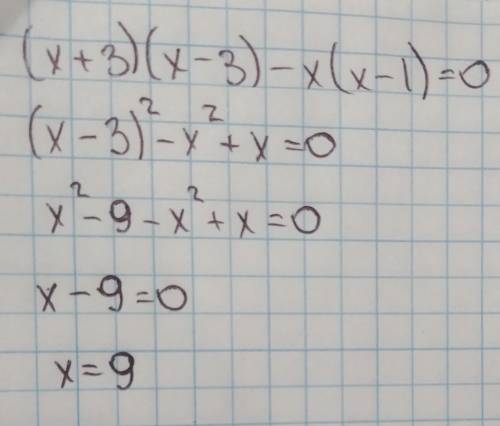 (x+3)(x-3)-x(x-1)=0
(x-3)²-x²+x=0
x²-9-x²+x=0
x-9=0
x=9